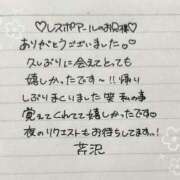 ♡レスポアールのお兄様♡
ありがとうございました。
久しぶりに会えてとっても
嬉しかったです〜!!帰り
しぶりまくりました笑 私の事
覚えてくれてて嬉しかったです
夜のリクエストもお待ちしてます!
芹沢